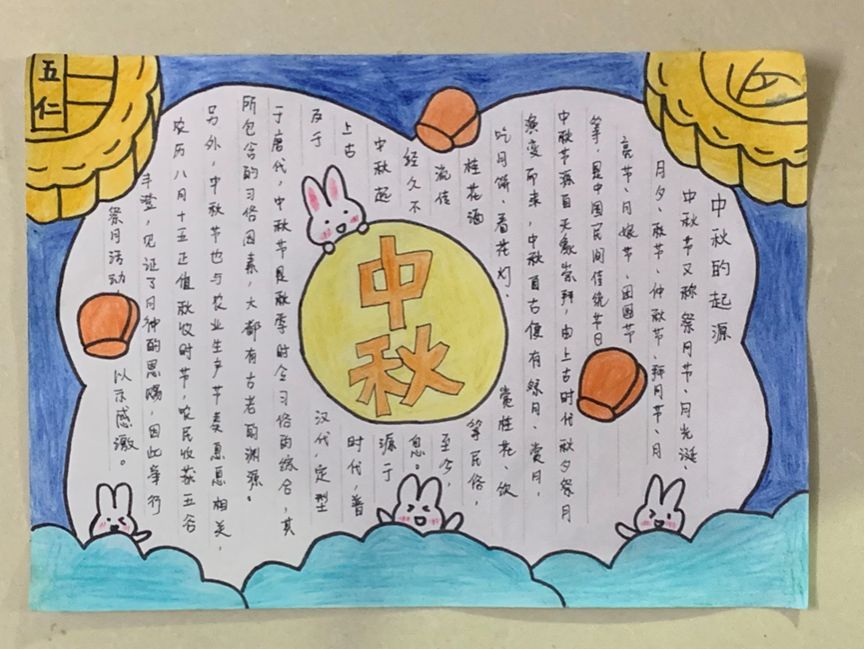 五仁
中秋
中秋的起源
中秋节又称祭月节、月光诞、
月夕、秋节、仲秋节、拜月节、月
亮节、月娘节、团圆节
等，是中国民间传统节日
中秋节源自天象崇拜，由上古时代秋夕祭月
演变而来，中秋自古便有祭月、赏月、
吃月饼、看花灯、赏桂花、饮
桂花酒等民俗，
流传至今，
经久不息。
中秋起源于
上古时代，普
及于汉代，定型
于唐代，中秋节是秋季时令习俗的综合，其
所包含的习俗因素，大都有古老的渊源。
另外，中秋节也与农业生产节奏息息相关，
农历八月十五正值秋收时节，农民收获五谷
丰登，见证了月神的恩赐，因此举行
祭月活动，以示感激。